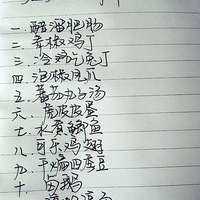 一. 醋溜肥肠
二. 青椒鸡丁
三. 冷吃兔丁
四. 泡椒凤爪
五. 番茄丸子汤
六. 虎皮皮蛋
七. 水煮鲫鱼
八. 可乐鸡翅
九. 干煸四季豆
十. 卤鹅